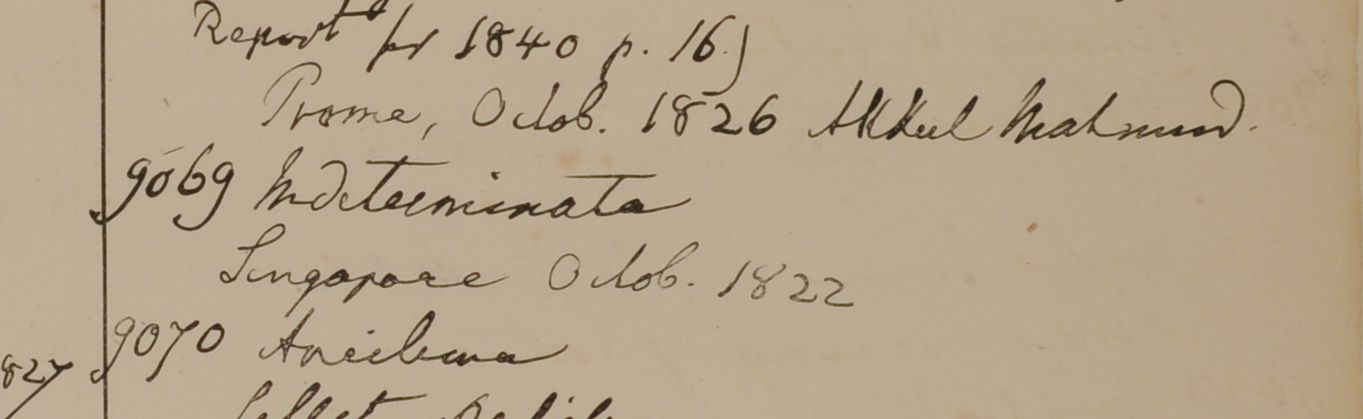 Report for 1840 p. 16.)
Prome, Octob. 1826 Akkul Mahmud.
9069 Indeterminata
Singapore Octob. 1822
9070 Aneilema
827